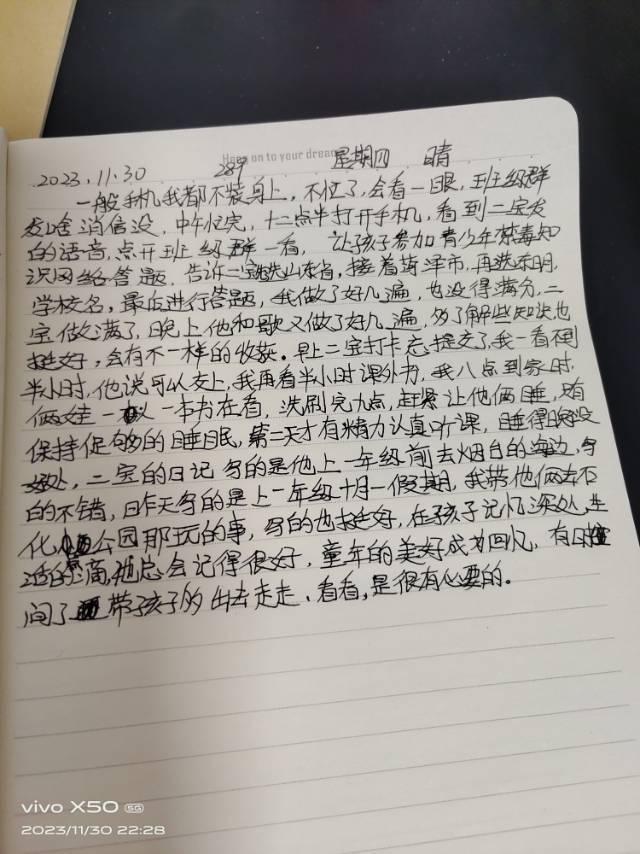 Hang on to your dream
2023.11.30 289 星期四 晴
一般手机我都不装身上，不忙了，会看一眼，班级群
发啥消信没，中午忙完，十二点半打开手机，看到二宝发
的语音，点开班级群一看，让孩子参加青少年禁毒知
识网络答题，告诉二宝先选山东省，接着菏泽市，再选东明，
学校名，最后进行答题，我做了好几遍，也没得满分，二
宝做满了，晚上他和歌又做了好几遍，多了解些知识也
挺好，会有不一样的收获。早上二宝打卡忘提交了，我一看不到
半小时，他说可以交上，我再看半小时课外书，我八点到家时，
俩娃一人一本书在看，洗刷完九点，赶紧让他俩睡，只有
保持足够的睡眠，第二天才有精力认真听课，睡得晚没
好处，二宝的日记写的是他上一年级前去烟台的海边，写
的不错，昨天写的是上一年级十月一假期，我带他俩去石
化公园那玩的事，写的也挺好，在孩子记忆深处，生
活的点滴，他总会记得很好，童年的美好成才回忆，有时
间了带孩子多出去走走、看看，是很有必要的。
vivo X50 5G
2023/11/30 22:28